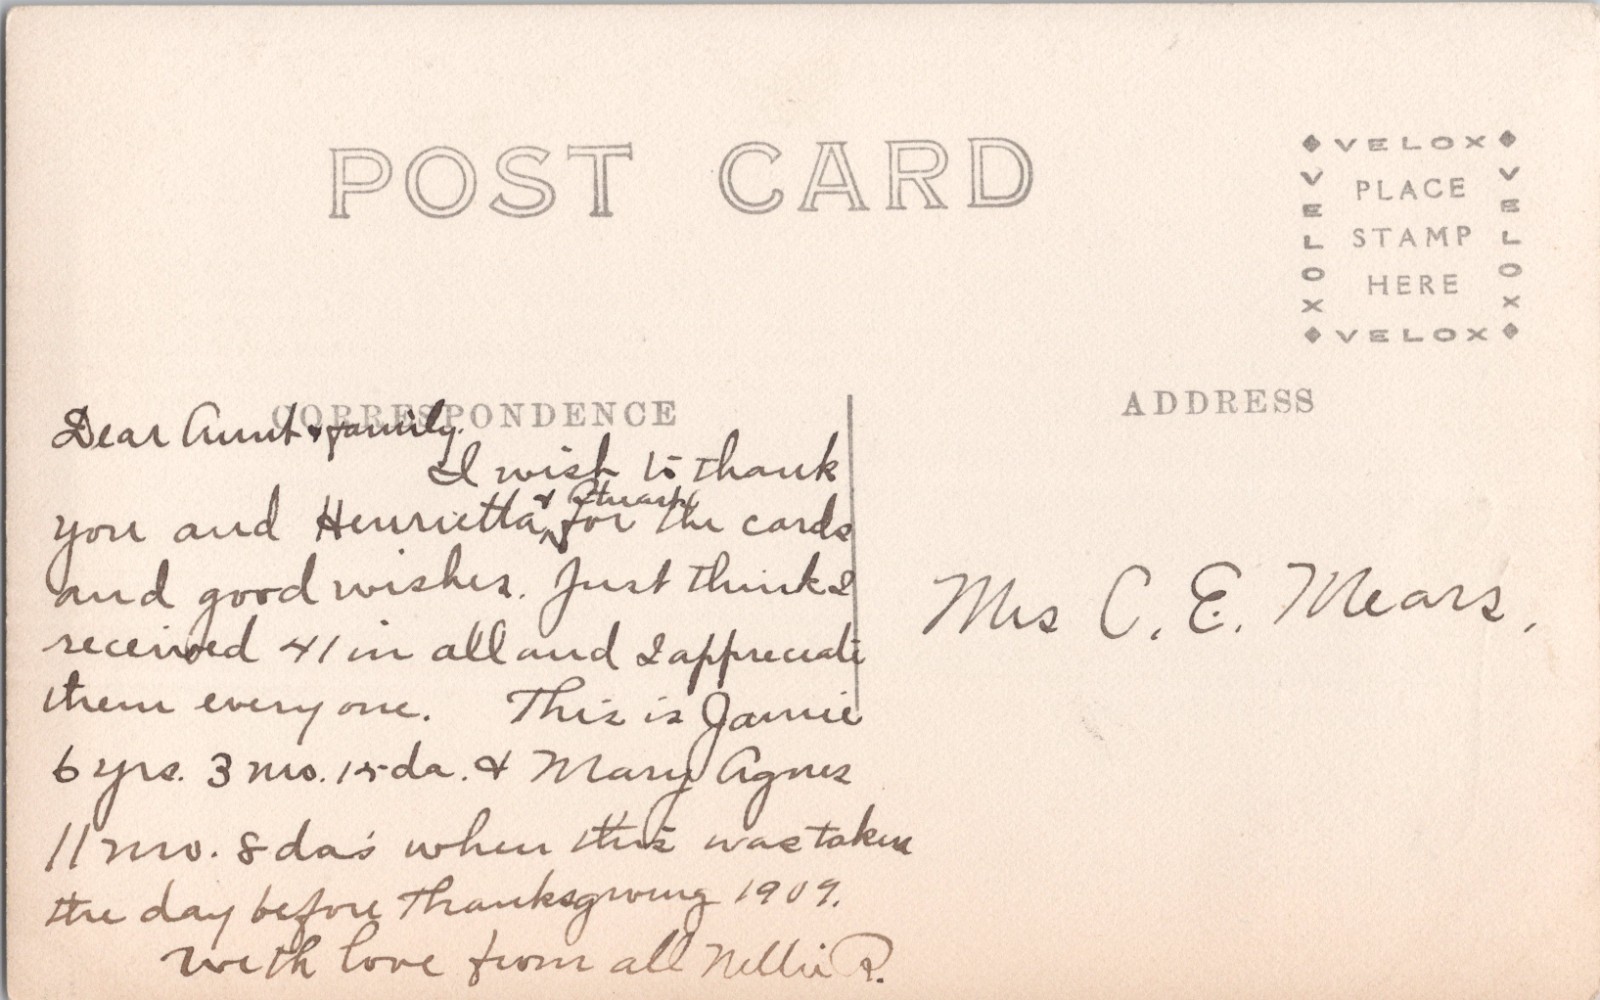 POST CARD
VELOX
VELOX
PLACE
STAMP
HERE
VELOX
VELOX
CORRESPONDENCE
ADDRESS
Dear Aunt & family.
I wish to thank
you and Henrietta & Stuart for the cards
and good wishes. Just think I
received 41 in all and I appreciate
them every one. This is Jamie
6 yrs. 3 mo. 15 da. & Mary Agnes
11 mo. 8 da's when this was taken
the day before Thanksgiving 1909.
With love from all Nellie R.
Mrs C. E. Mears.